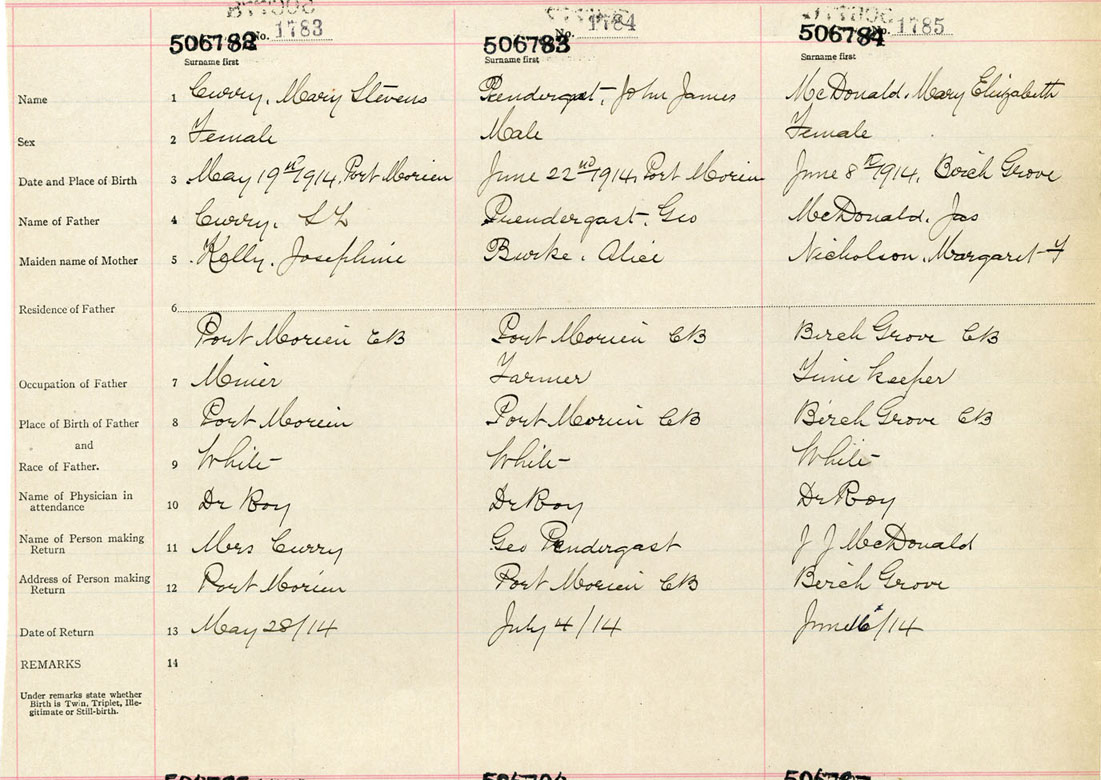 506782 No. 1783
Surname first
506783 No. 1784
Surname first
506784 No. 1785
Surname first
Name 1 Curry, Mary Stevens Prendergast, John James McDonald, Mary Elizabeth
Sex 2 Female Male Female
Date and Place of Birth 3 May 19th 1914, Port Morien June 22nd 1914, Port Morien June 8th 1914, Birch Grove
Name of Father 4 Curry, S L Prendergast, Geo McDonald, Jas
Maiden name of Mother 5 Kelly, Josephine Burke, Alice Nicholson, Margaret
Residence of Father 6
Port Morien CB Port Morien CB Birch Grove CB
Occupation of Father 7 Miner Farmer Time Keeper
Place of Birth of Father 8 Port Morien Port Morien CB Birch Grove CB
and
Race of Father. 9 White White White
Name of Physician in
attendance 10 Dr Roy Dr Roy Dr Roy
Name of Person making
Return 11 Mrs Curry Geo Pendergast J J McDonald
Address of Person making
Return 12 Port Morien Port Morien CB Birch Grove
Date of Return 13 May 28/14 July 4/14 June 16/14
REMARKS 14
Under remarks state whether
Birth is Twin, Triplet, Ille-
gitimate or Still-birth.